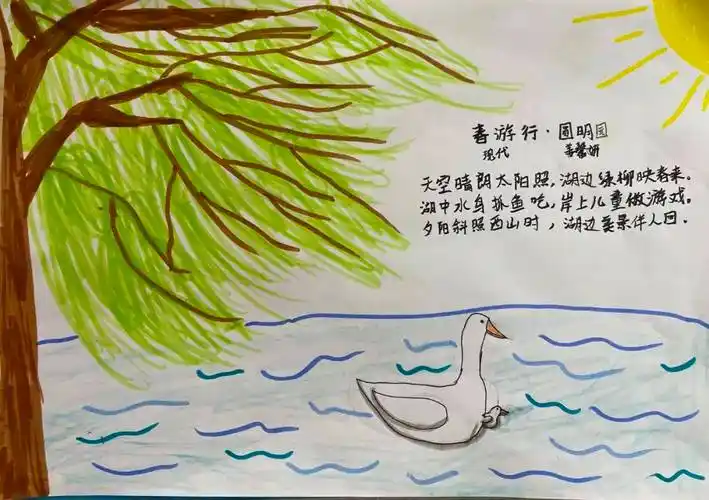 春游行·圆明园
现代 姜馨妍
天空晴朗太阳照，湖边绿柳映春来。
湖中水鸟抓鱼吃，岸上儿童做游戏。
夕阳斜照西山时，湖边美景伴人回。